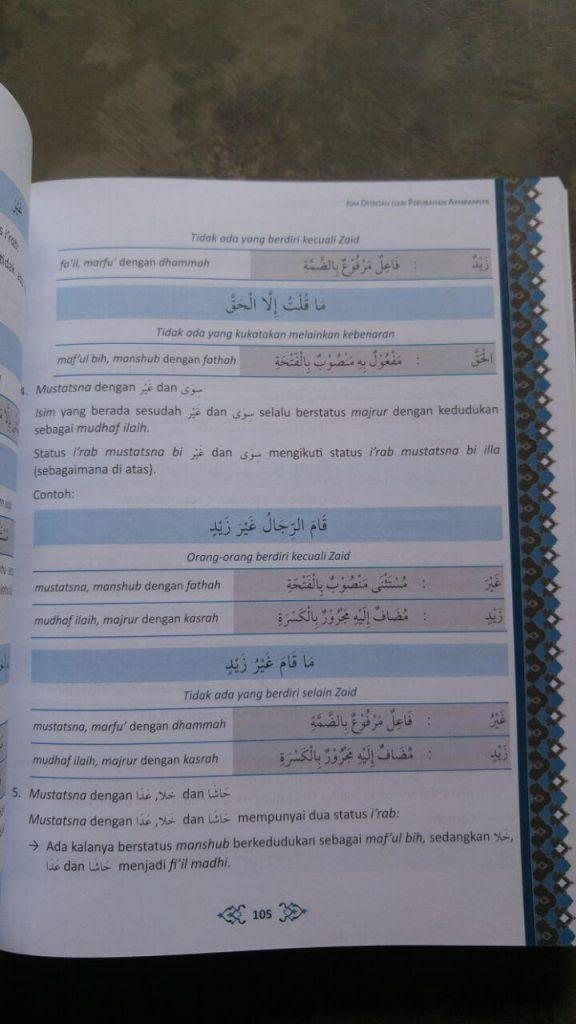 ISIM DITINJAU DARI PERUBAHAN AKHIRANNYA
Tidak ada yang berdiri kecuali Zaid
fa'il, marfu' dengan dhammah فَاعِلٌ مَرْفُوْعٌ بِالضَّمَّةِ : زَيْدٌ
مَا قُلْتُ إِلَّا الْحَقَّ
Tidak ada yang kukatakan melainkan kebenaran
maf'ul bih, manshub dengan fathah مَفْعُوْلٌ بِهِ مَنْصُوْبٌ بِالْفَتْحَةِ : الْحَقَّ
4. Mustatsna dengan غَيْر dan سِوَى
Isim yang berada sesudah غَيْر dan سِوَى selalu berstatus majrur dengan kedudukan
sebagai mudhaf ilaih.
Status i'rab mustatsna bi غَيْر dan سِوَى mengikuti status i'rab mustatsna bi illa
(sebagaimana di atas).
Contoh:
قَامَ الرِّجَالُ غَيْرَ زَيْدٍ
Orang-orang berdiri kecuali Zaid
mustatsna, manshub dengan fathah مُسْتَثْنَى مَنْصُوْبٌ بِالْفَتْحَةِ : غَيْرَ
mudhaf ilaih, majrur dengan kasrah مُضَافٌ إِلَيْهِ مَجْرُوْرٌ بِالْكَسْرَةِ : زَيْدٍ
مَا قَامَ غَيْرُ زَيْدٍ
Tidak ada yang berdiri selain Zaid
mustatsna, marfu' dengan dhammah فَاعِلٌ مَرْفُوْعٌ بِالضَّمَّةِ : غَيْرُ
mudhaf ilaih, majrur dengan kasrah مُضَافٌ إِلَيْهِ مَجْرُوْرٌ بِالْكَسْرَةِ : زَيْدٍ
5. Mustatsna dengan خَلَا, عَدَا dan حَاشَا
Mustatsna dengan خَلَا, عَدَا dan حَاشَا mempunyai dua status i'rab:
→ Ada kalanya berstatus manshub berkedudukan sebagai maf'ul bih, sedangkan خَلَا,
عَدَا dan حَاشَا menjadi fi'il madhi.
105